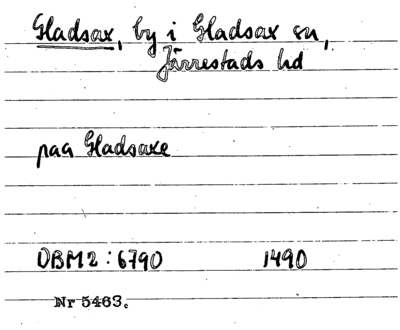 Gladsax, by i Gladsax sn,
Järrestads hd
paa Gladsaxe
DBM2:6790 1490
Nr 5463.